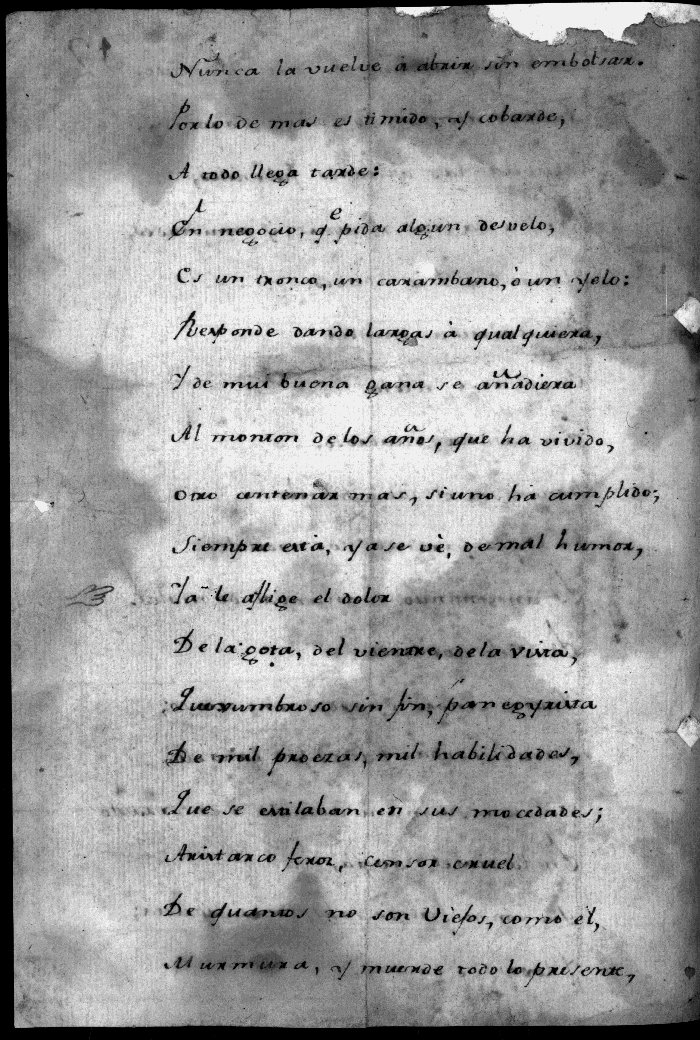 Nunca la vuelve à abrir sin embolsar.
Por lo demas es timido, y cobarde,
A todo llega tarde:
En negocio, qe pida algun desvelo,
Es un tronco, un carambano, ò un yelo:
Responde dando largas à qualquiera,
Y de mui buena gana se añadiera
Al monton de los años, que ha vivido,
Otro centenàr mas, si uno hà cumplido;
Siempre està, ya se vè, de mal humor,
Ya le aflige el dolor
De la gota, del vientre, de la vista,
Querumbroso sin fin, panegyrista
De mil proezas, mil habilidades,
Que se estilaban en sus mocedades;
Aristarco feroz, censor cruel
De quantos no son Viejos, como èl,
Murmura, y muerde todo lo presente,